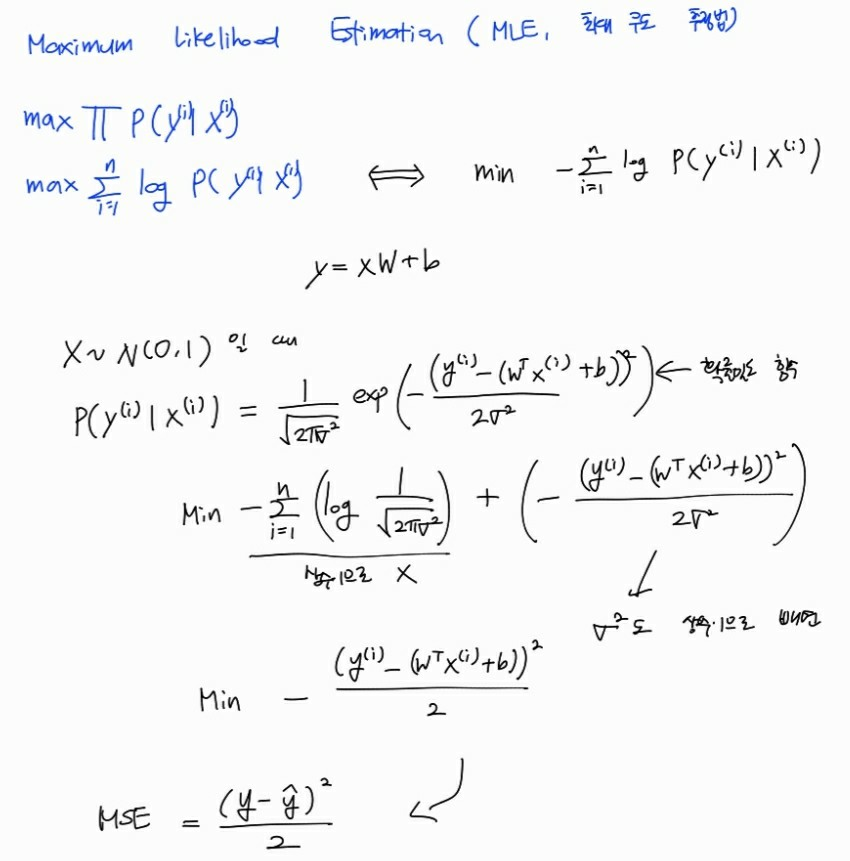 Maximum Likelihood Estimation (MLE, 최대 우도 추정법)
max ∏ P(y⁽ⁱ⁾| x⁽ⁱ⁾)
max ∑ᵢ₌₁ⁿ log P(y⁽ⁱ⁾| x⁽ⁱ⁾) ⟺ min -∑ᵢ₌₁ⁿ log P(y⁽ⁱ⁾ | x⁽ⁱ⁾)
y = xW + b
X ~ N(0,1) 일 때
P(y⁽ⁱ⁾ | x⁽ⁱ⁾) = 1/√(2πσ²) exp(-(y⁽ⁱ⁾ - (wᵀx⁽ⁱ⁾ + b))²/2σ²) ← 확률밀도 함수
Min -∑ᵢ₌₁ⁿ (log 1/√(2πσ²)) + (-(y⁽ⁱ⁾ - (wᵀx⁽ⁱ⁾+b))²/2σ²)
상수이므로 X
σ²도 상수이므로 빼면
Min - (y⁽ⁱ⁾ - (wᵀx⁽ⁱ⁾+b))²/2
MSE = (y-ŷ)²/2